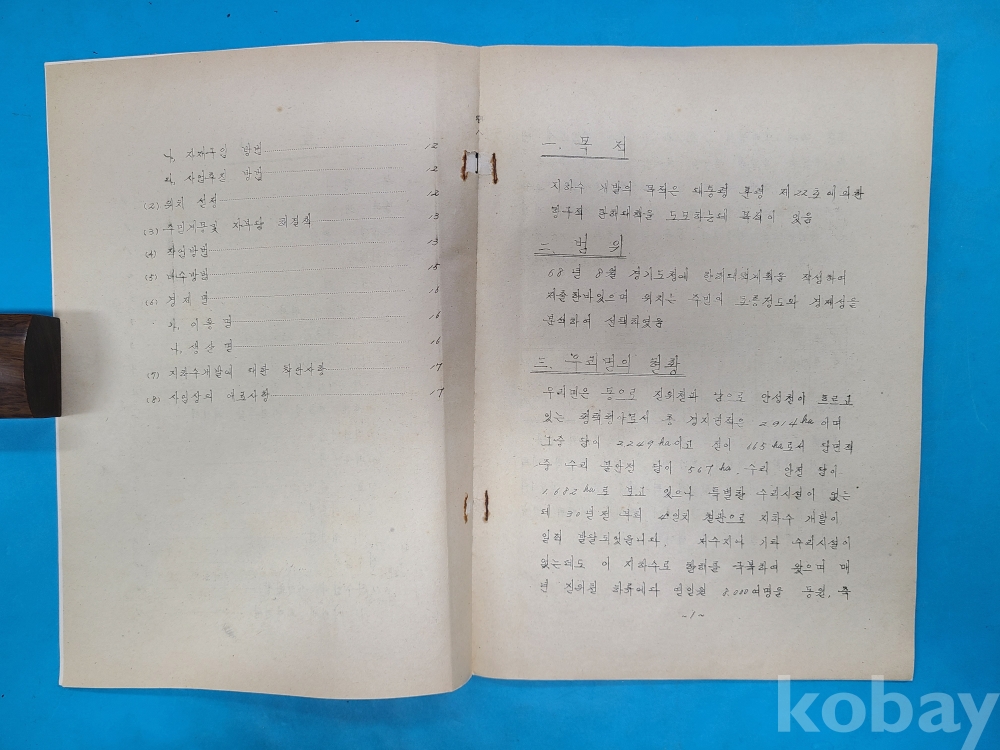 나, 자재구입 방법 12
라, 사업추진 방법 12
(2) 위치 선정 12
(3) 주민계몽및 자부담 13
(4) 착안방법 13
(5) 배수방법 15
(6) 경제면 16
가, 이용면 16
나, 생산면 16
(7) 지하수개발에 대한 착안사항 17
(8) 사업상의 애로사항 17
一. 목적
지하수 개발의 목적은 대통령 훈령 제22호에의한
항구적 한해대책을 도모하는데 목적이 있음
二. 범의
68년 8월 경기도청에 한해대책계획을 작성하여
제출한바있으며 위치는 주민이 호응정도와 경제성을
분석하여 선택하였음
三. 우리면의 현황
우리면은 동으로 진위천과 앞으로 안성천이 흐르고
있는 평택평야로서 총 경지면적은 2914ha이며
그중 답이 2249ha이고 전이 665ha로서 답면적
중 수리 불안전 답이 567ha, 수리 안전 답이
1.682ha로 보고 있으나 특별한 수리시설이 없는
데 30년전 부터 4인치 철관으로 지하수 개발이
일찍 발달되었습니다. 저수지나 기타 수리시설이
없는데도 이 지하수로 한해를 극복하여 왔으며 매
년 진위천 하류에다 연인원 8.000여명을 동원, 축
-1-
kobay